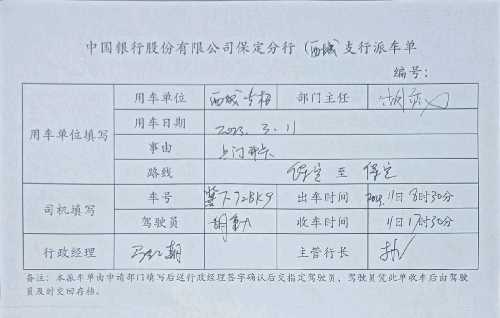 中国银行股份有限公司保定分行（西城 支行派车单
编号：
用车单位填写 用车单位 西城支行 部门主任
用车日期 2023.3.11
事由 上门开卡
路线 保定 至 保定
司机填写 车号 出车时间 11日8时30分
驾驶员 收车时间 11日17时30分
行政经理 主管行长
备注：本派车单由申请部门填写后送行政经理签字确认后交指定驾驶员，驾驶员凭此单收车后由驾驶
员及时交回存档。